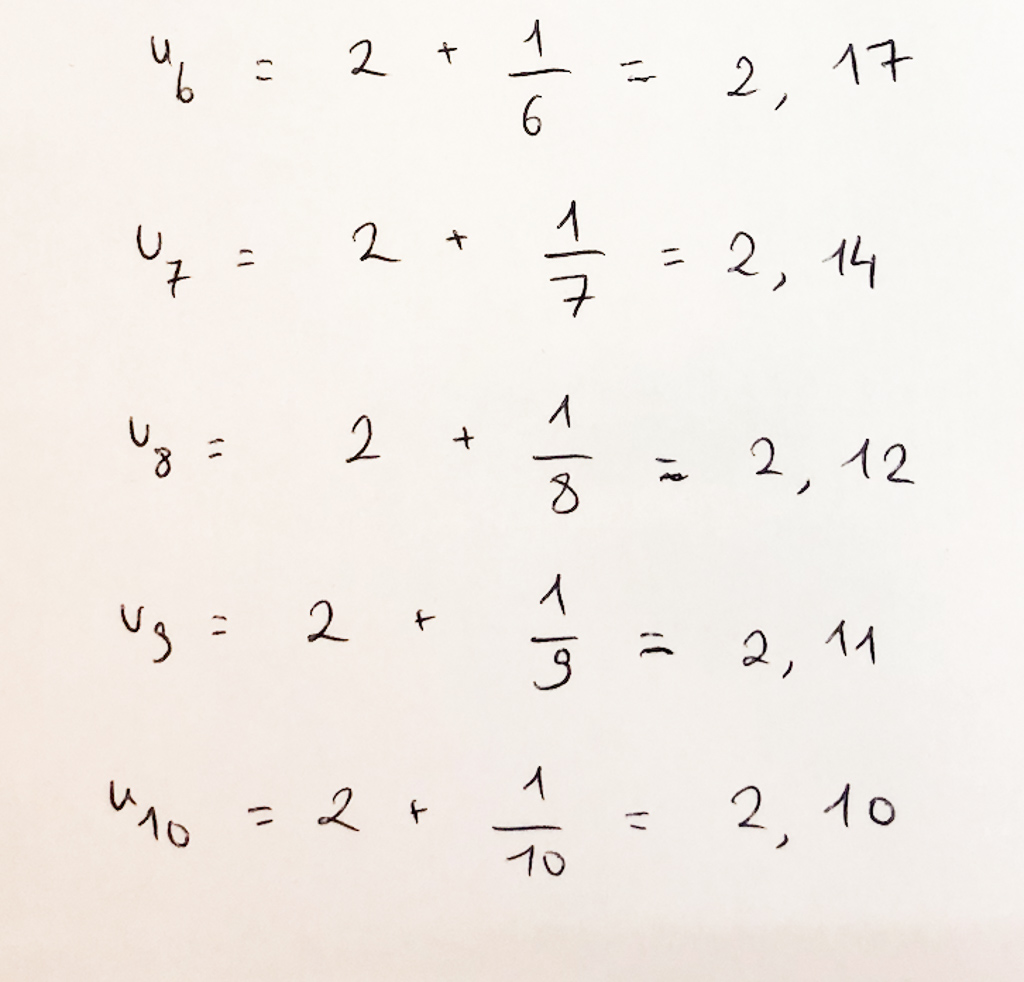 u₆ = 2 + 1/6 = 2,17
u₇ = 2 + 1/7 = 2,14
u₈ = 2 + 1/8 = 2,12
u₉ = 2 + 1/9 = 2,11
u₁₀ = 2 + 1/10 = 2,10